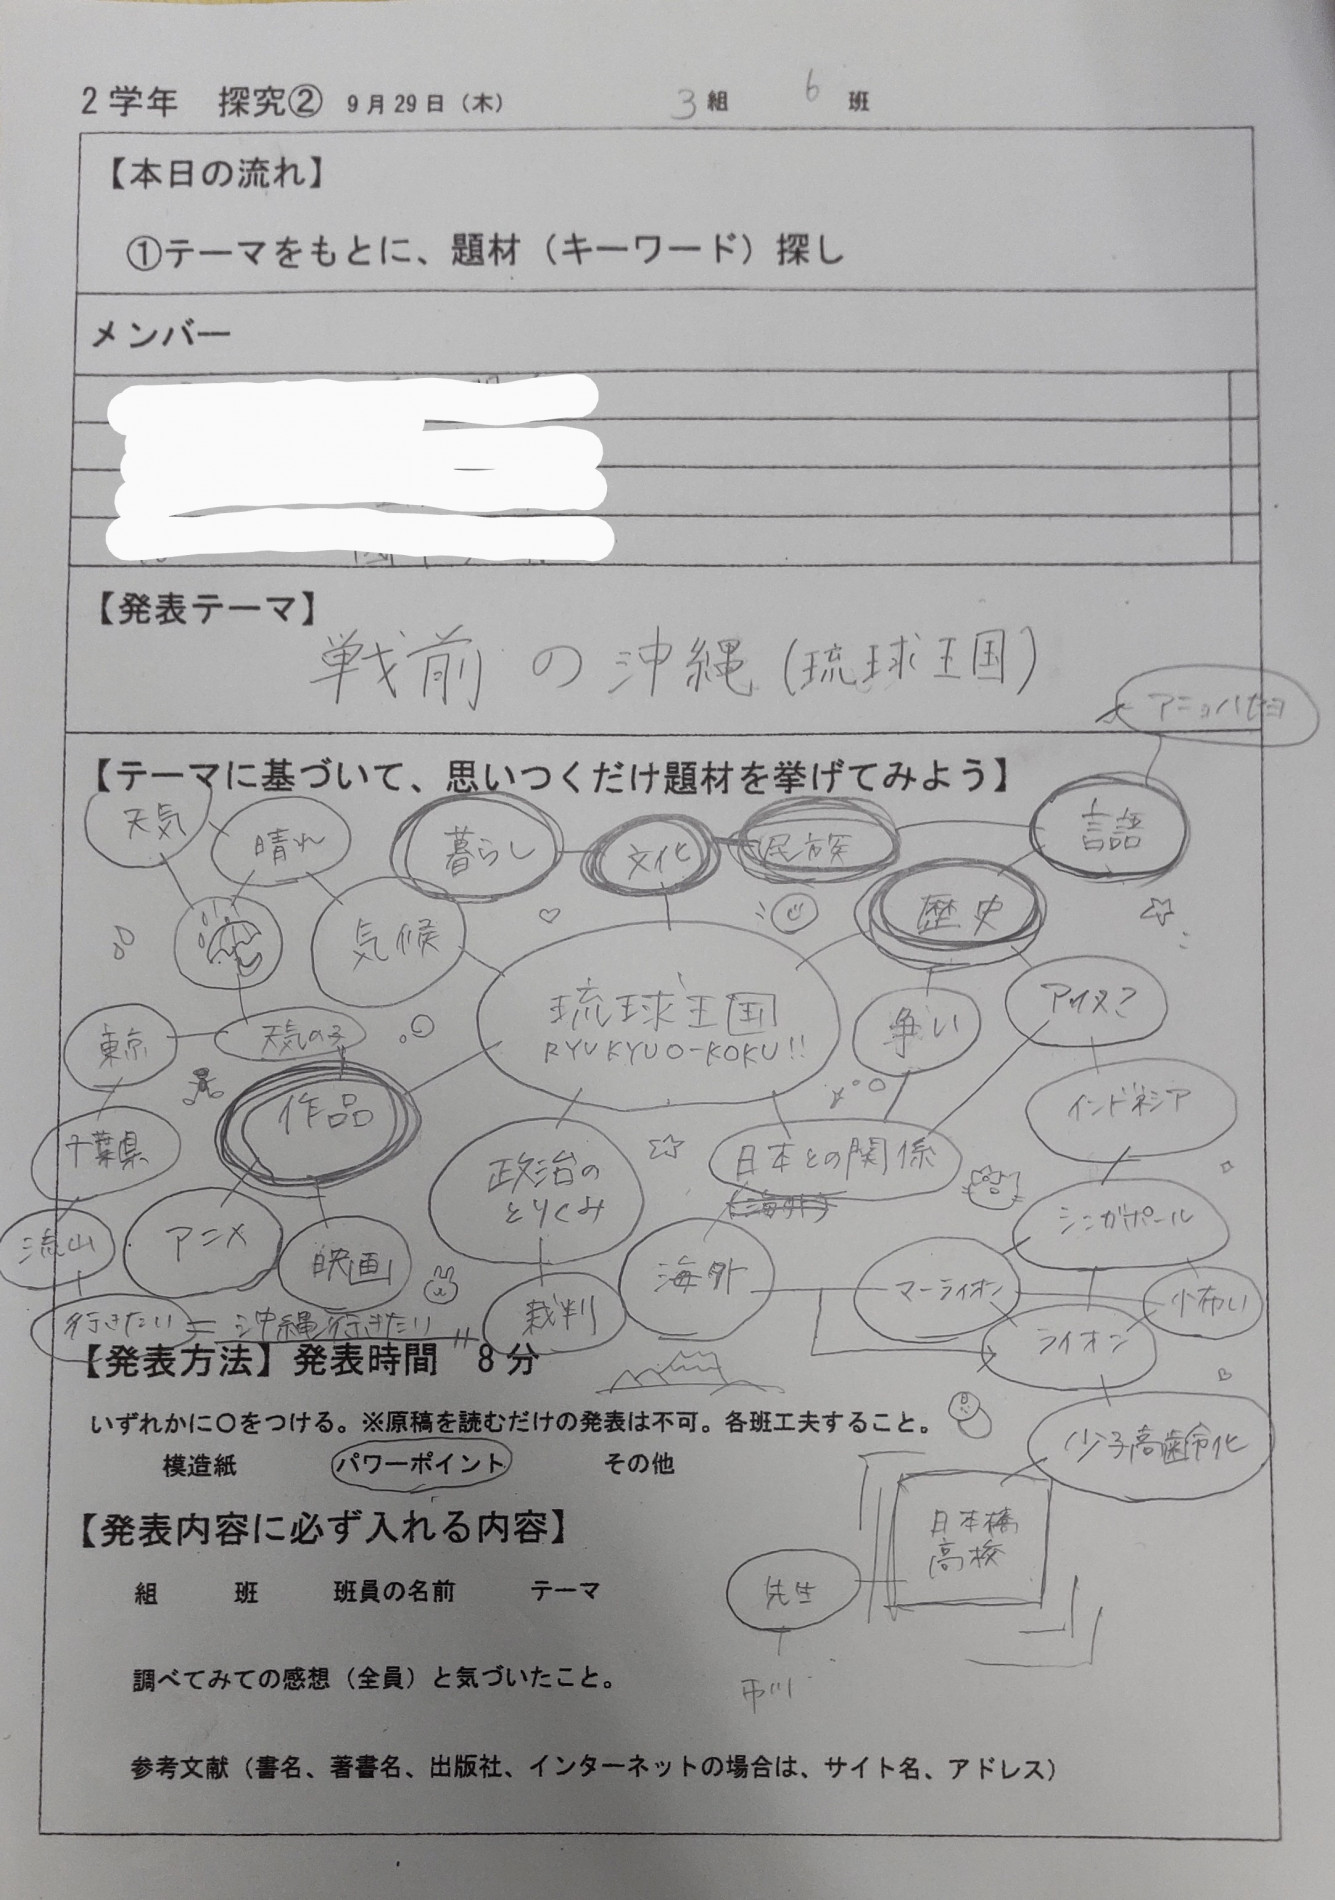 2学年 探究② 9月29日（木） 3組 6班
【本日の流れ】
①テーマをもとに、題材（キーワード）探し
メンバー
【発表テーマ】
戦前の沖縄(琉球王国)
アニョハセヨ
【テーマに基づいて、思いつくだけ題材を挙げてみよう】
天気
晴れ
暮らし
文化
民族
言語
歴史
気候
琉球王国
RYUKYUO-KOKU!!
争い
アイヌ?
東京
天気の子
作品
インドネシア
千葉県
政治の
とりくみ
日本との関係
(海外)
シンガポール
流山
アニメ
映画
海外
マーライオン
小布い
行きたい＝沖縄行きたい
裁判
ライオン
【発表方法】発表時間 8分
いずれかに○をつける。※原稿を読むだけの発表は不可。各班工夫すること。
少子高歯令化
模造紙 パワーポイント その他
【発表内容に必ず入れる内容】
日本橋
高校
組 班 班員の名前 テーマ
先生
調べてみての感想（全員）と気づいたこと。
市川
参考文献（書名、著書名、出版社、インターネットの場合は、サイト名、アドレス）